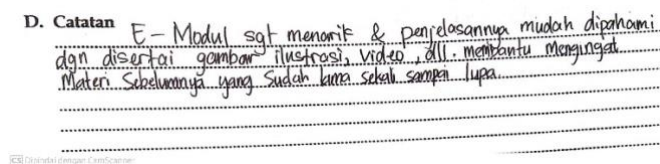 D. Catatan E-Modul sgt menarik & penjelasannya mudah dipahami
dgn disertai gambar ilustrasi, video, dll. membantu Mengingat
Materi Sebelumnya yang Sudah lama sekali sampai lupa.
CS Dipindai dengan CamScanner